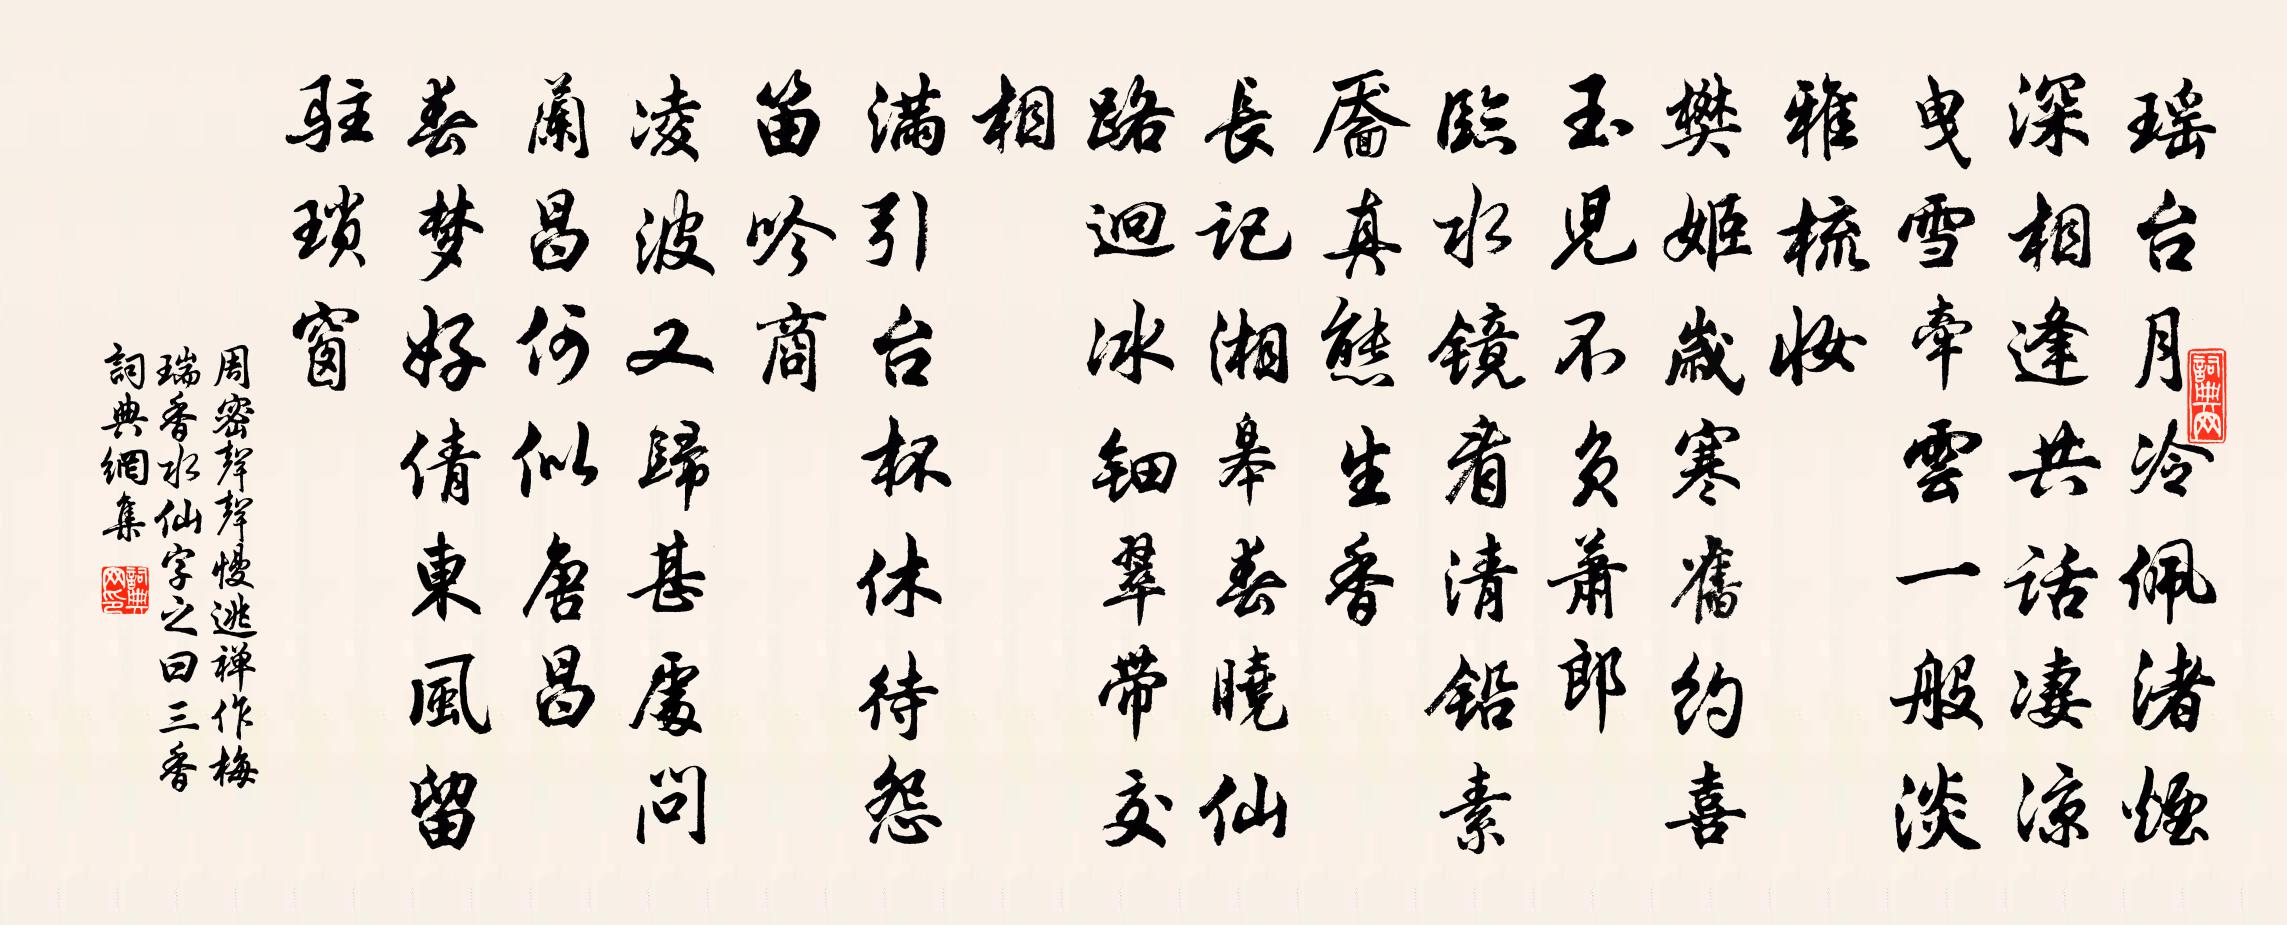 瑶台月冷佩渚煙
深相逢共話凄凉
曳雪牽雲一般淡
雅梳妝
樊姬歲寒舊約喜
玉兒不負蕭郎
臨水镜看清铅素
靥真態生香
長記湘皋春曉仙
路迥冰钿翠带交
相
满引台杯休待怨
笛吟商
凌波又歸甚處問
蘭昌何似唐昌
春梦好倩東風留
駐瑣窗
周密聲聲慢逃禅作梅
瑞香水仙字之曰三香
詞典網集
詞典网
詞典网印